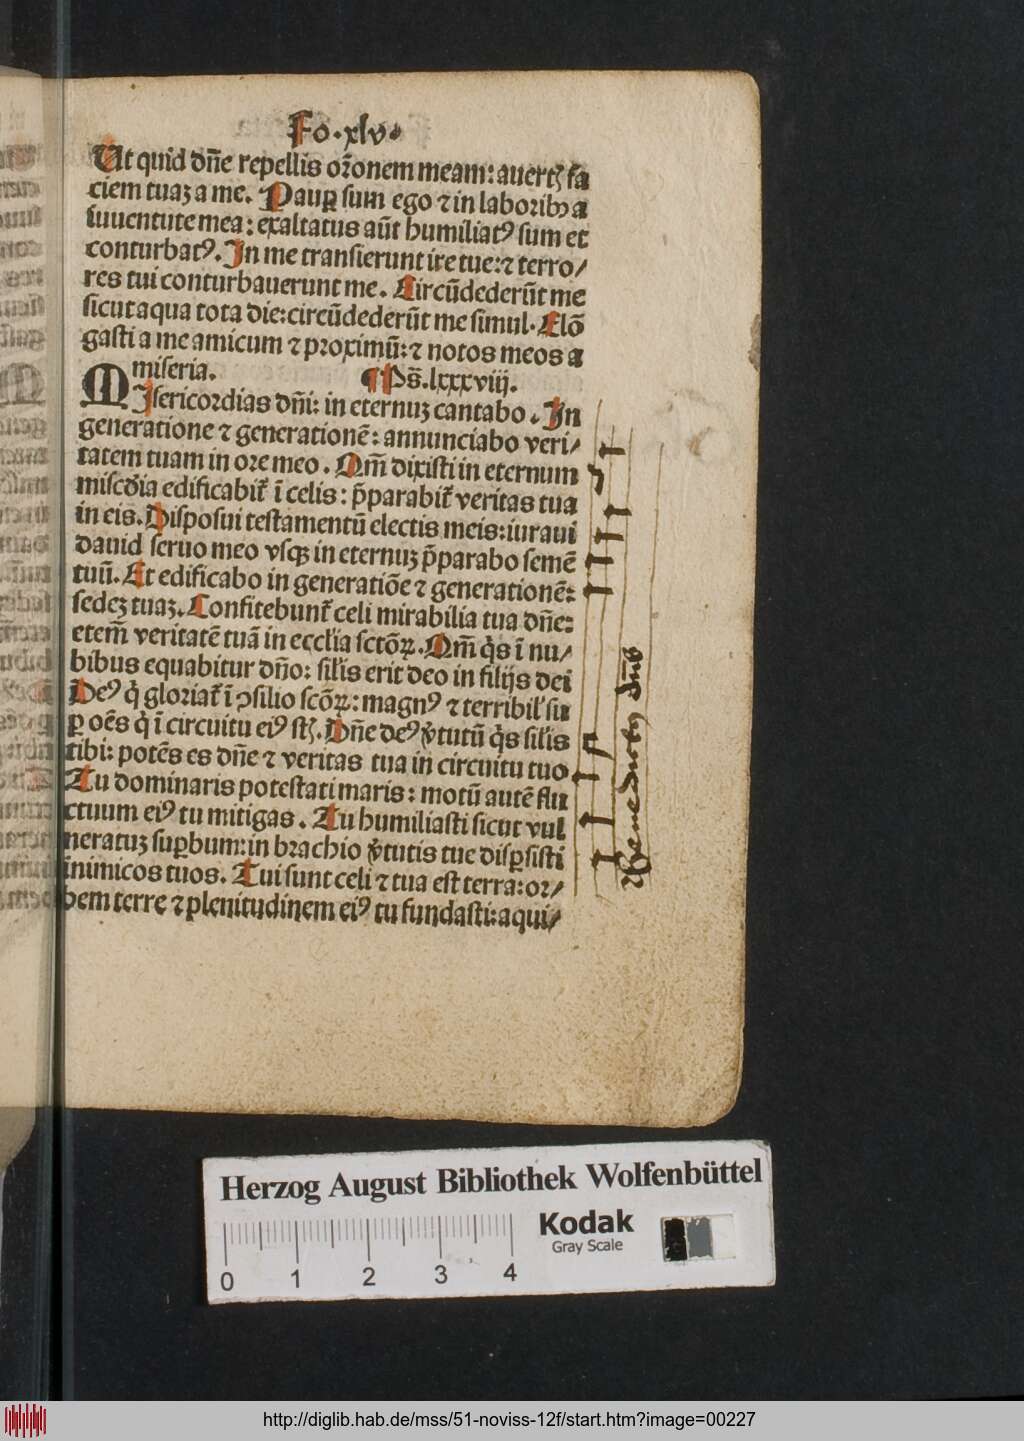 Fo.xlv.
Ut quid dñe repellis orõnem meam: auertꝭ fa
ciem tuaꝫ a me. Paupꝑ sum ego ⁊ in laboribꝰ a
iuuentute mea: exaltatus aũt humiliatꝰ sum et
conturbatꝰ. In me transierunt ire tue: ⁊ terro/
res tui conturbauerunt me. Circũdederũt me
sicut aqua tota die: circũdederũt me simul. Elõ
gasti a me amicum ⁊ proximũ: ⁊ notos meos a
miseria. ¶ Ps̃.lxxxviij.
MIsericordias dñi: in eternuꝫ cantabo. In
generatione ⁊ generationẽ: annunciabo veri/
tatem tuam in ore meo. Qm̃ dixisti in eternum
miscðia edificabit᷑ ĩ celis: p̃parabit᷑ veritas tua
in eis. Disposui testamentũ electis meis: iuraui
dauid seruo meo vsqꝫ in eternuꝫ p̃parabo semẽ
tuũ. Et edificabo in generatiõe ⁊ generationẽ:
sedeꝫ tuaꝫ. Confitebunt᷑ celi mirabilia tua dñe:
etem̃ veritatẽ tuã in eccl'ia sctõꝝ. Qm̃ q̇s ĩ nu/
bibus equabitur dño: sil'is erit deo in filijs dei
Deꝰ q̇ gloriat᷑ ĩ ꝯsilio scõꝝ: magnꝰ ⁊ terribil' su
ꝑ oẽs q̇ ĩ circuitu eiꝰ sũt. Dñe deꝰ v̓tutũ q̇s sil'is
tibi: potẽs es dñe ⁊ veritas tua in circuitu tuo
Tu dominaris potestati maris: motũ autẽ flu
ctuum eiꝰ tu mitigas. Tu humiliasti sicut vul
neratuꝫ suꝑbum: in brachio v̓tutis tue disꝑsisti
inimicos tuos. Tui sunt celi ⁊ tua est terra: or/
bem terrę ⁊ plenitudinem eiꝰ tu fundasti: aqui/
Benedictꝰ dñs
Herzog August Bibliothek Wolfenbüttel
Kodak
Gray Scale
0 1 2 3 4
http://diglib.hab.de/mss/51-noviss-12f/start.htm?image=00227